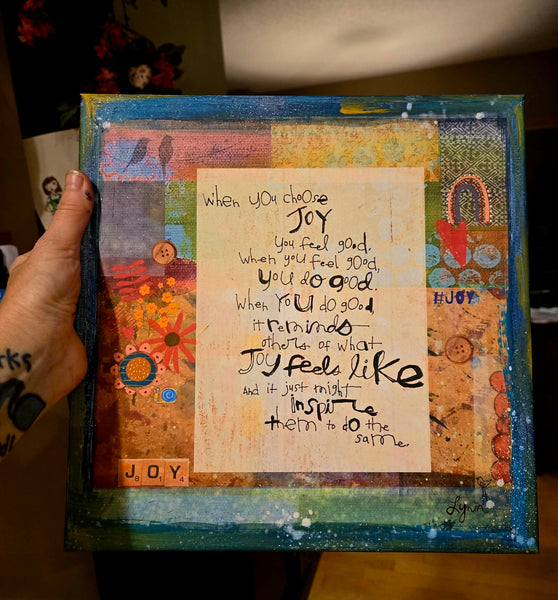 When you choose
JOY
you feel good.
When you feel good,
you do good.
When you do good
it reminds
others of what
JOY feels like
And it just might
inspire
them to do the
same.
#JOY
J8 O1 Y4
Lynn
rks